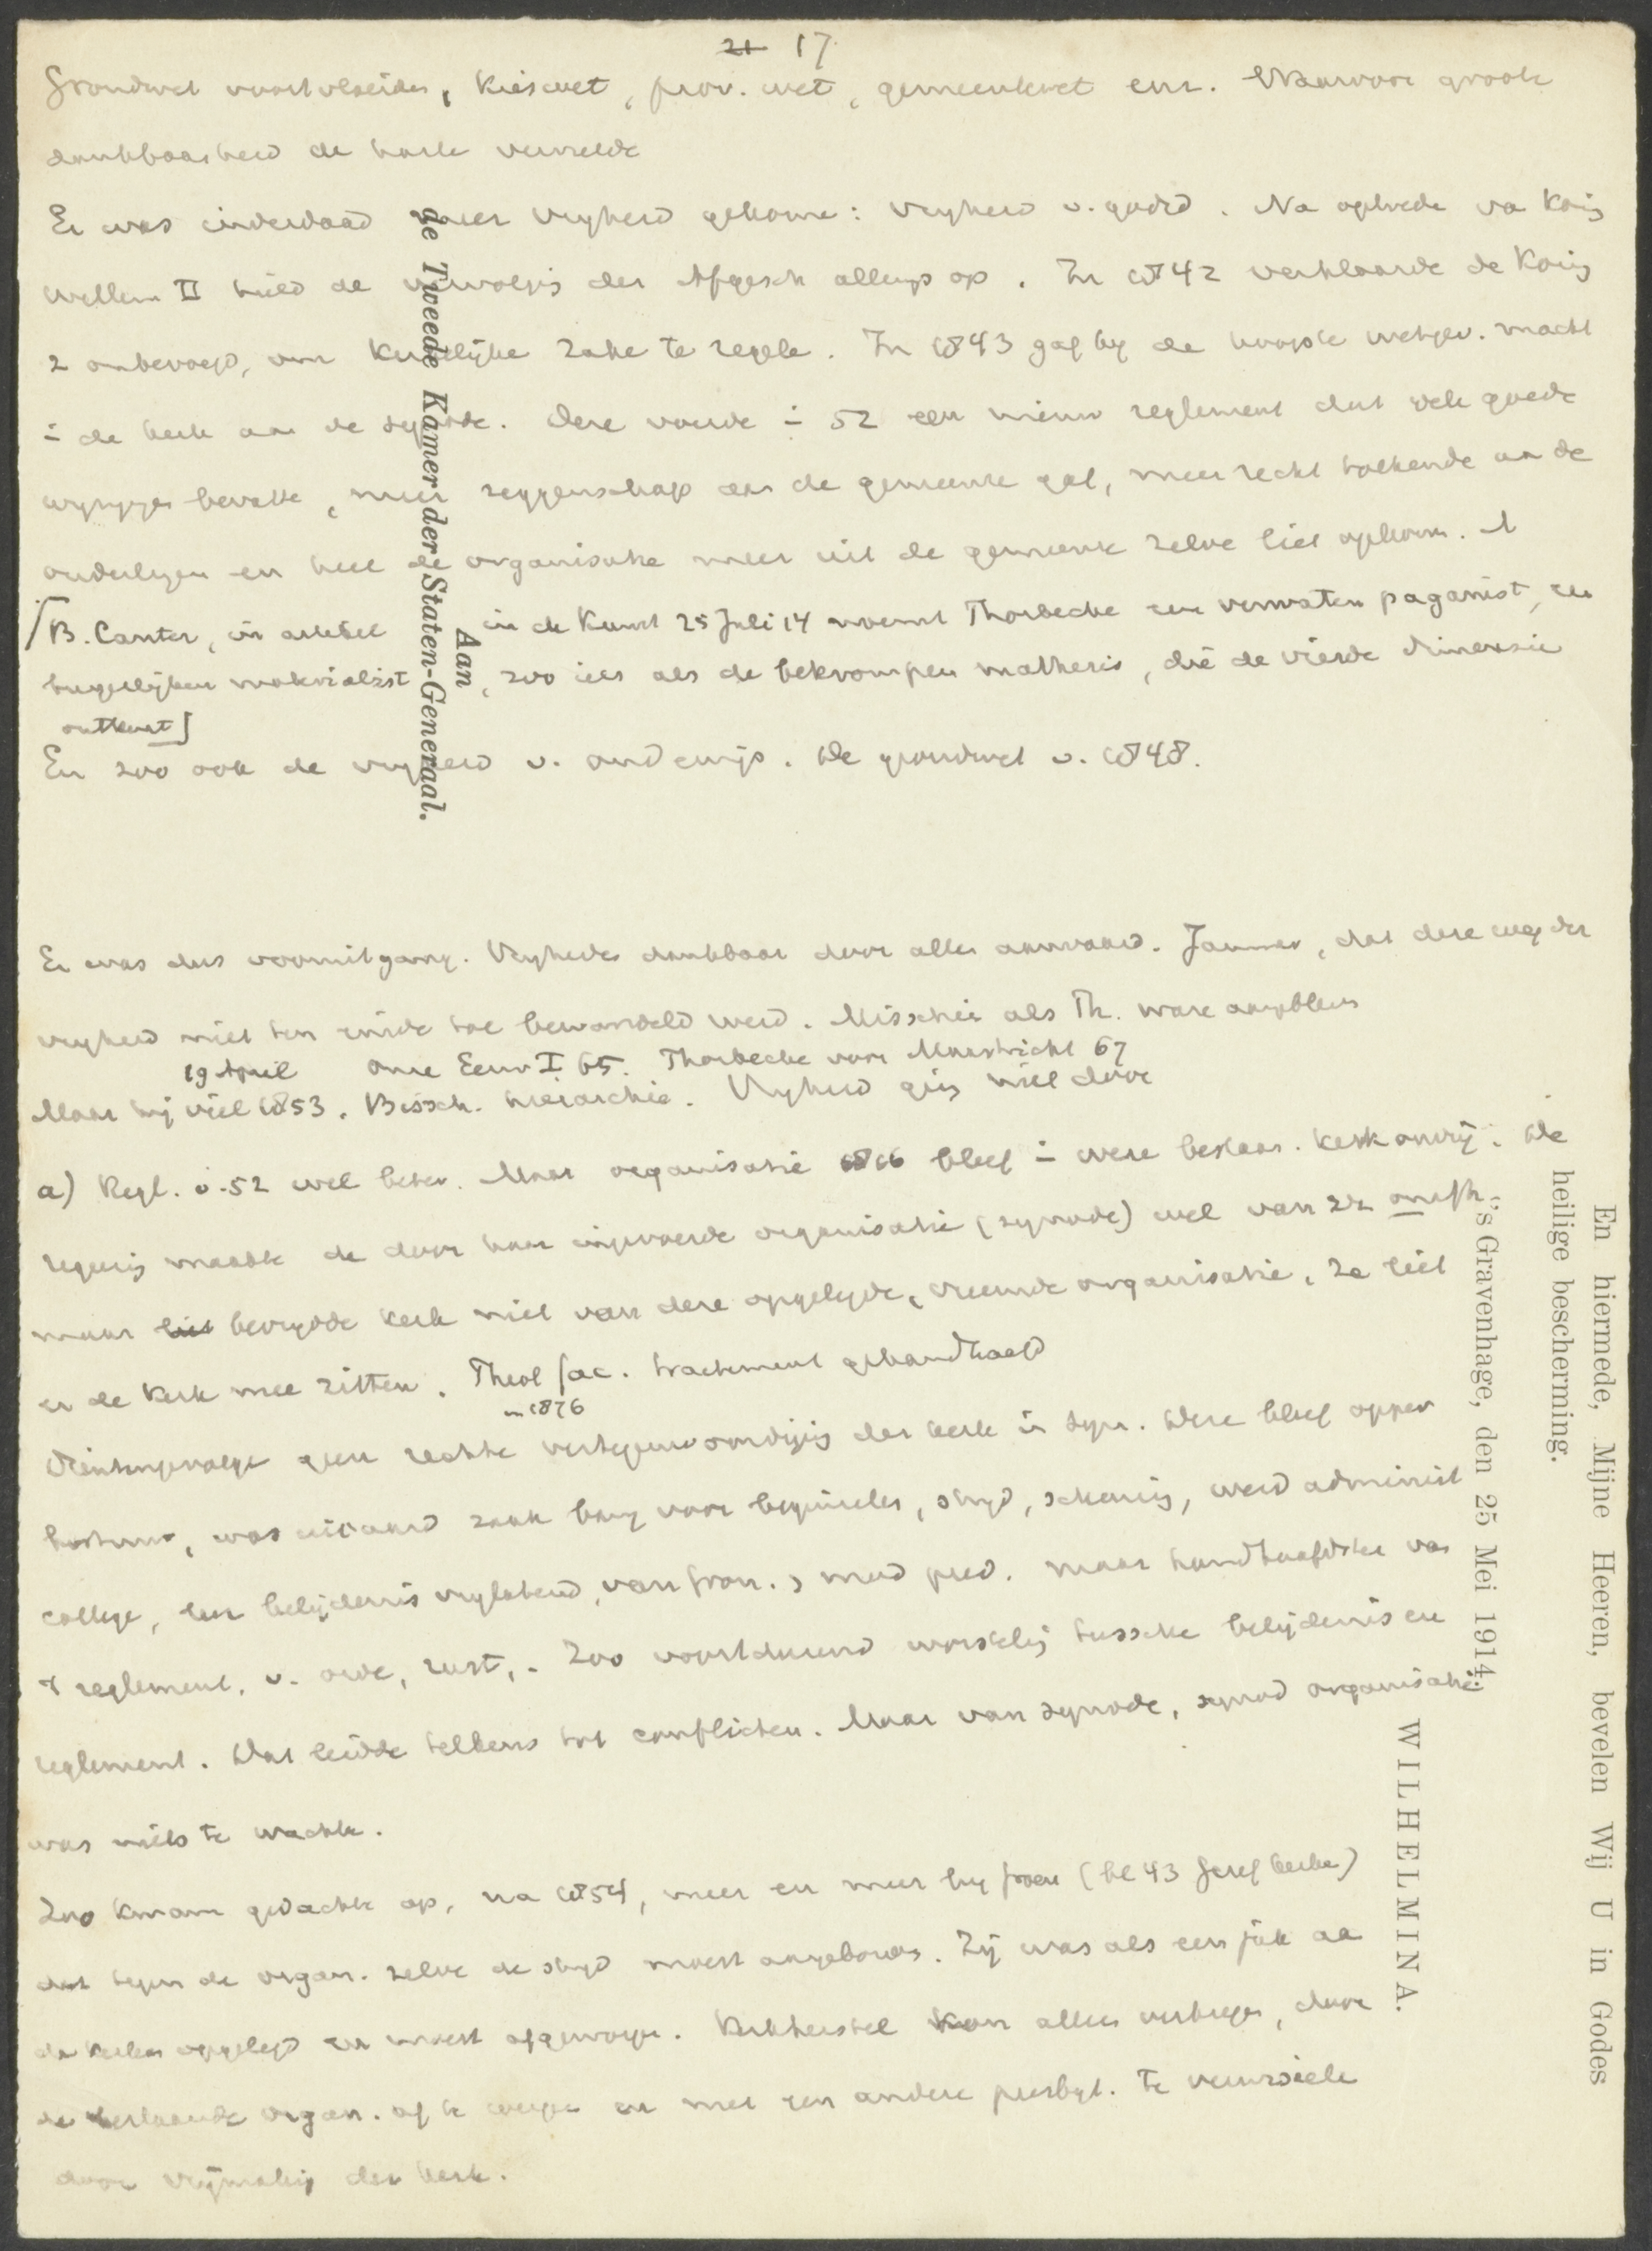 21 17
Grondwet voortvloeiden, Kieswet, prov. wet, gemeentewet enz. Waarvoor groote
dankbaarheid de harte vervulde
Er was inderdaad meer vryheid gekome: vryheid v. godsd. Na optrede va Konig
Willem II hield de vervolgig der Afgesch allengs op. In 1842 verklaarde de Konig
z onbevoegd, om Kerkelijke zake te regele. In 1843 gaf hy de hoogste wetgev. macht
i de kerk aan de synode. Deze voerde i 52 een nieuw reglement dat vele goede
wyzigge bevatte, meer zeggenschap aan de gemeente gaf, meer recht toekende aa de
ouderlingen en heel de organisatie meer uit de gemeente zelve liet opkom.
[B. Canter, in artikel in de Kunst 25 Juli 14 noemt Thorbecke een verwaten paganist, een
burgerlijken materialist, zoo iets als de bekrompen mathesis, die de vierde dimensie
ontkent]
En zoo ook de vryheid v. onderwijs. De grondwet v. 1848.
Er was dus vooruitgang. Vryhede dankbaar door alle aanvaard. Jammer, dat deze weg der
vryheid niet ten einde toe bewandeld werd. Misschie als Th. ware aangebleven
19 April Onze Eeuw I 65. Thorbecke voor Maastricht 67
Maar hij viel 1853. Bissch. hierarchie. Vryheid ging niet door
a) Regl. v. 52 wel beter. Maar organisatie 1816 bleef i weze bestaan. Kerk onvrij. De
regerig maakte de door haar ingevoerde organisatie (synode) wel van zich onafh.,
maar liet bevrydde kerk niet van deze opgelegde, vreemde organisatie. Ze liet
er de Kerk mee zitten. Theol fac. tractement gehandhaafd
in 1876
Dientengevolge geen rechte vertegenwoordigig der kerk in syn. Deze bleef opper
bestuur, was uiteraard zaak bang voor beginsele, stryd, scheurig, werd administ
college, ten belijdenis vrylatend, van pred. maar handhaafdster va
't reglement, v. orde, rust. Zoo voortdurend worstelig tussche belijdenis en
reglement. Dat leidde telkens tot conflicten. Maar van synode, synod organisatie
was niets te wachte.
Zoo kwam gedachte op, na 1854, meer en meer by Groen (bl 43 Geref kerke)
dat tegen de organ. zelve de stryd moest aangebonde. Zij was als een juk aa
de kerken opgelegd en moest afgeworpe. Kerkherstel kon alleen verkrege, door
de bestaande organ. af te werpe en met een andere presbyt. te verwissele
door vrijmakig der kerk.
Aan
de Tweede Kamer der Staten-Generaal.
En hiermede, Mijne Heeren, bevelen Wij U in Godes
heilige bescherming.
's Gravenhage, den 25 Mei 1914.
WILHELMINA.